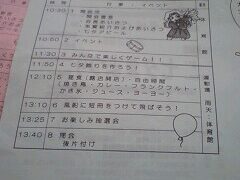 行事・イベント
10:30 1 開会式
開会宣言
ちびアピール
10:50 2 イベント
11:30 3 みんなで楽しくゲーム!!
11:50 4 七夕飾りを作ろう!
12:10 5 昼食(露店開店)・自由時間
(焼き鳥・カレー・フランクフルト・
かき氷・ジュース・ヨーヨー)
13:10 6 風船に短冊をつけて飛ばそう!
13:25 7 お楽しみ抽選会
13:40 8 閉会
後片付け
雨天:体育館